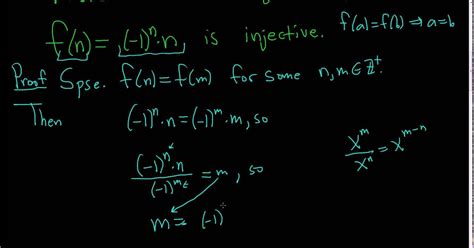 f(n) = (-1)ⁿ·n is injective. f(a)=f(b) ⇒ a=b
Proof Spse. f(n)=f(m) for some n,m∈ℤ⁺.
Then
(-1)ⁿ·n=(-1)ᵐ·m, so
(-1)ⁿ·n / (-1)ᵐ = m, so
xᵐ / xⁿ = xᵐ⁻ⁿ
m = (-1)